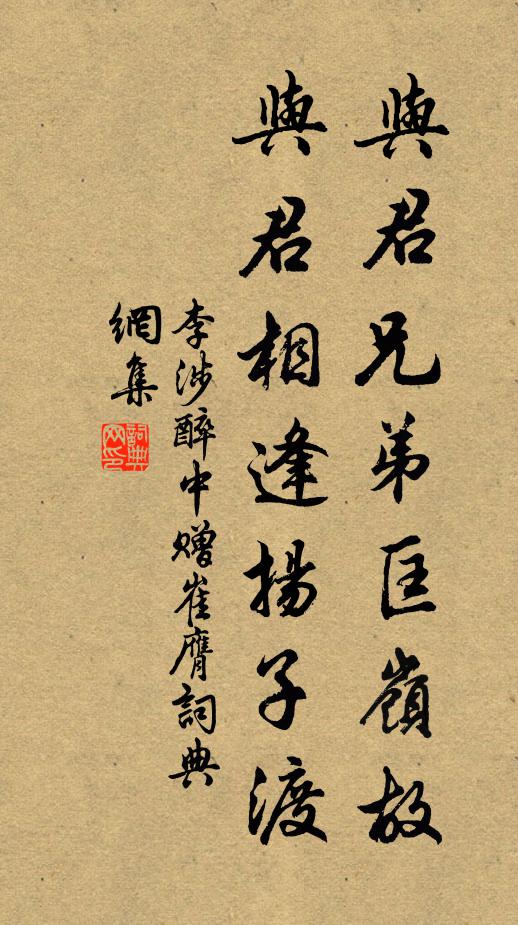 與君兄弟匡嶺故
與君相逢揚子渡
李涉醉中贈崔膺詞典
網集
詞典
网印